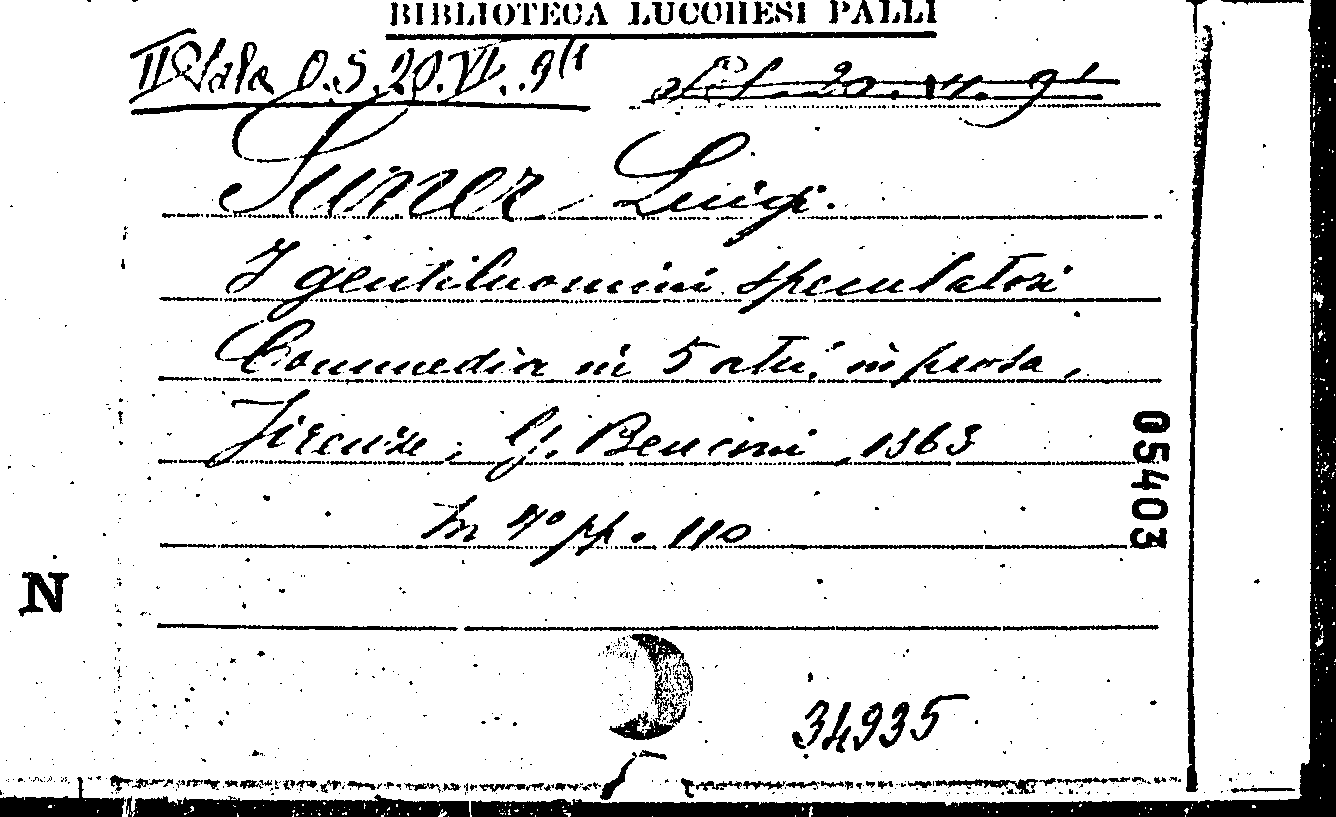 BIBLIOTECA LUCCHESI PALLI
II Sala O.S. 20. VI. 9
20. VI. 9
Suner Luigi.
I gentiluomini speculatori
Commedia in 5 atti, in prosa,
Firenze, G. Bencini, 1863
In 4° pp. 110
05403
N
34935